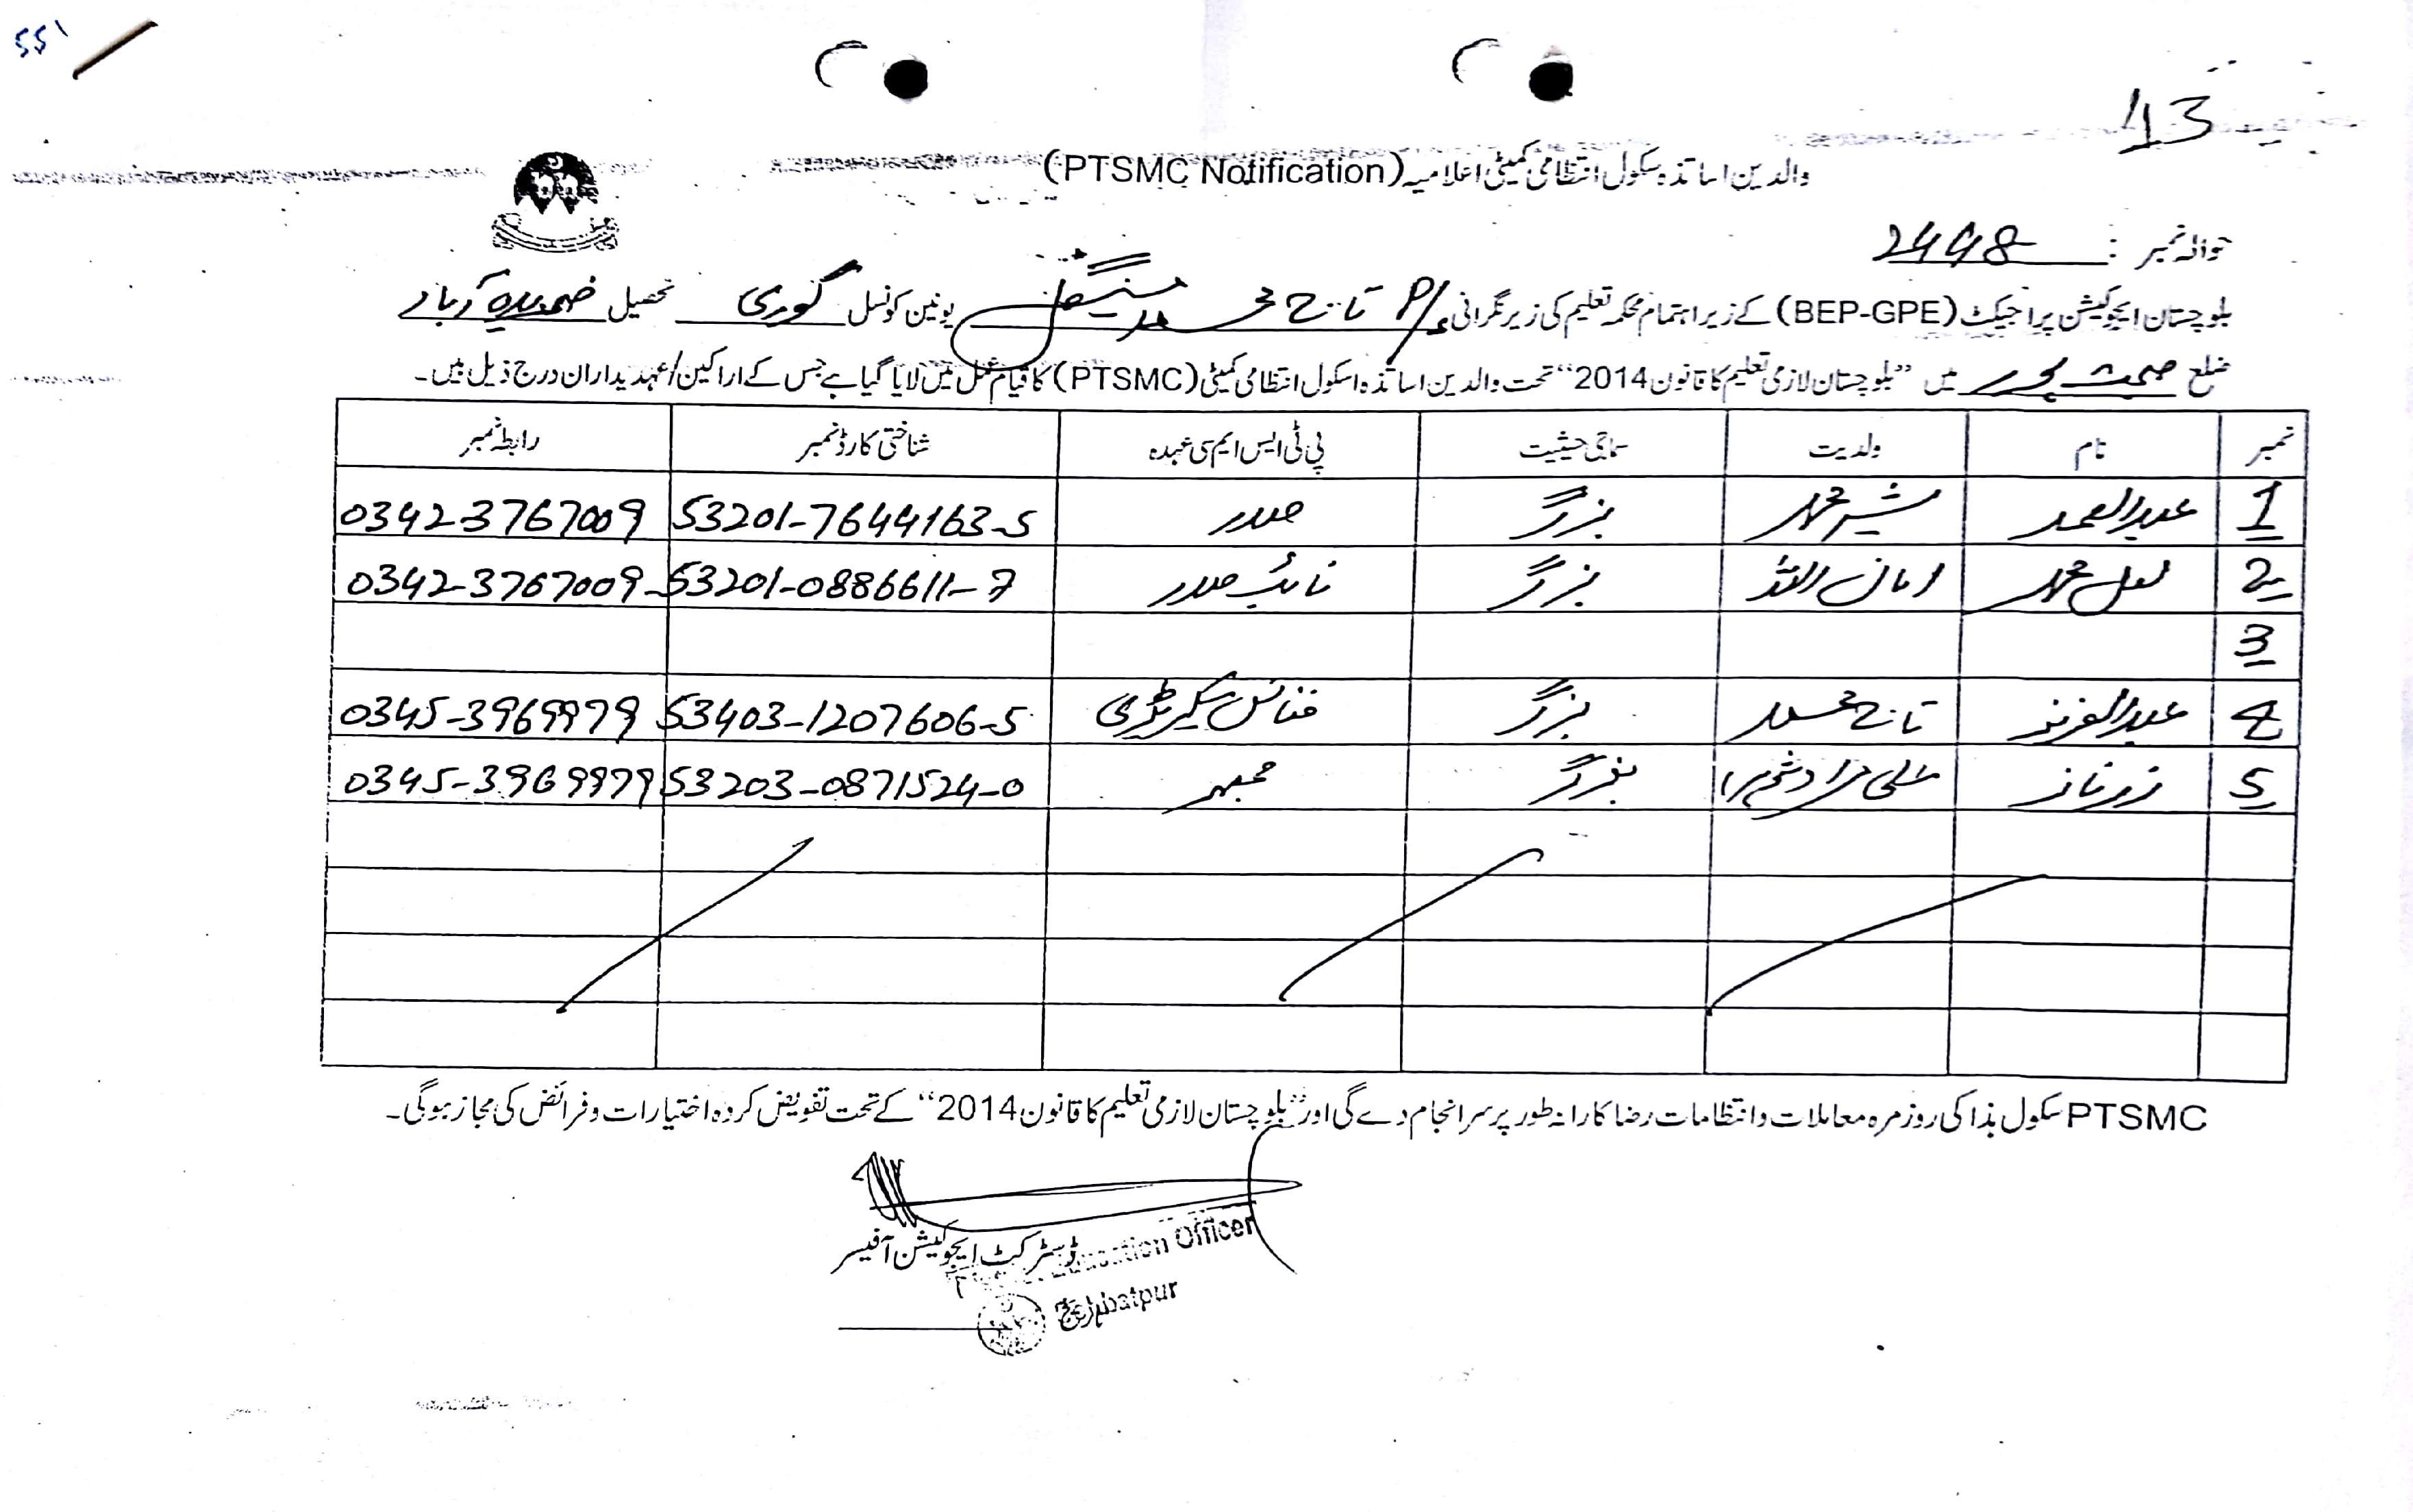 55
13
والدین اساتذہ سکول انتظامی کمیٹی اعلامیہ (PTSMC Notification)
حوالہ نمبر : 2448
بلوچستان ایجوکیشن پراجیکٹ (BEP-GPE) کے زیر اہتمام محکمہ تعلیم کی زیر نگرانی P/S تاج محمد مینگل یونین کونسل گوری تحصیل
ضلع صحبت پور میں ”بلوچستان لازمی تعلیم کا قانون 2014“ تحت والدین اساتذہ اسکول انتظامی کمیٹی (PTSMC) کا قیام عمل میں لایا گیا ہے جس کے اراکین/عہدیداران درج ذیل ہیں۔
نمبر نام ولدیت سماجی حیثیت پی ٹی ایس ایم سی عہدہ شناختی کارڈ نمبر رابطہ نمبر
1 عبدالصمد شیر محمد بزرگ صدر 53201-7644163-5 0342-3767009
2 لعل محمد امان اللہ بزرگ نائب صدر 53201-0886611-7 0342-3767009
3
4 عبدالعزیز تاج محمد بزرگ فنانس سیکریٹری 53403-1207606-5 0345-3969979
5 زرناز علی مراد بزرگ ممبر 53203-0871524-0 0345-3969979
PTSMC سکول ہذا کی روزمرہ معاملات و انتظامات رضا کارانہ طور پر سرانجام دے گی اور ”بلوچستان لازمی تعلیم کا قانون 2014“ کے تحت تفویض کردہ اختیارات و فرائض کی مجاز ہوگی۔
ڈسٹرکٹ ایجوکیشن آفیسر
Education Officer